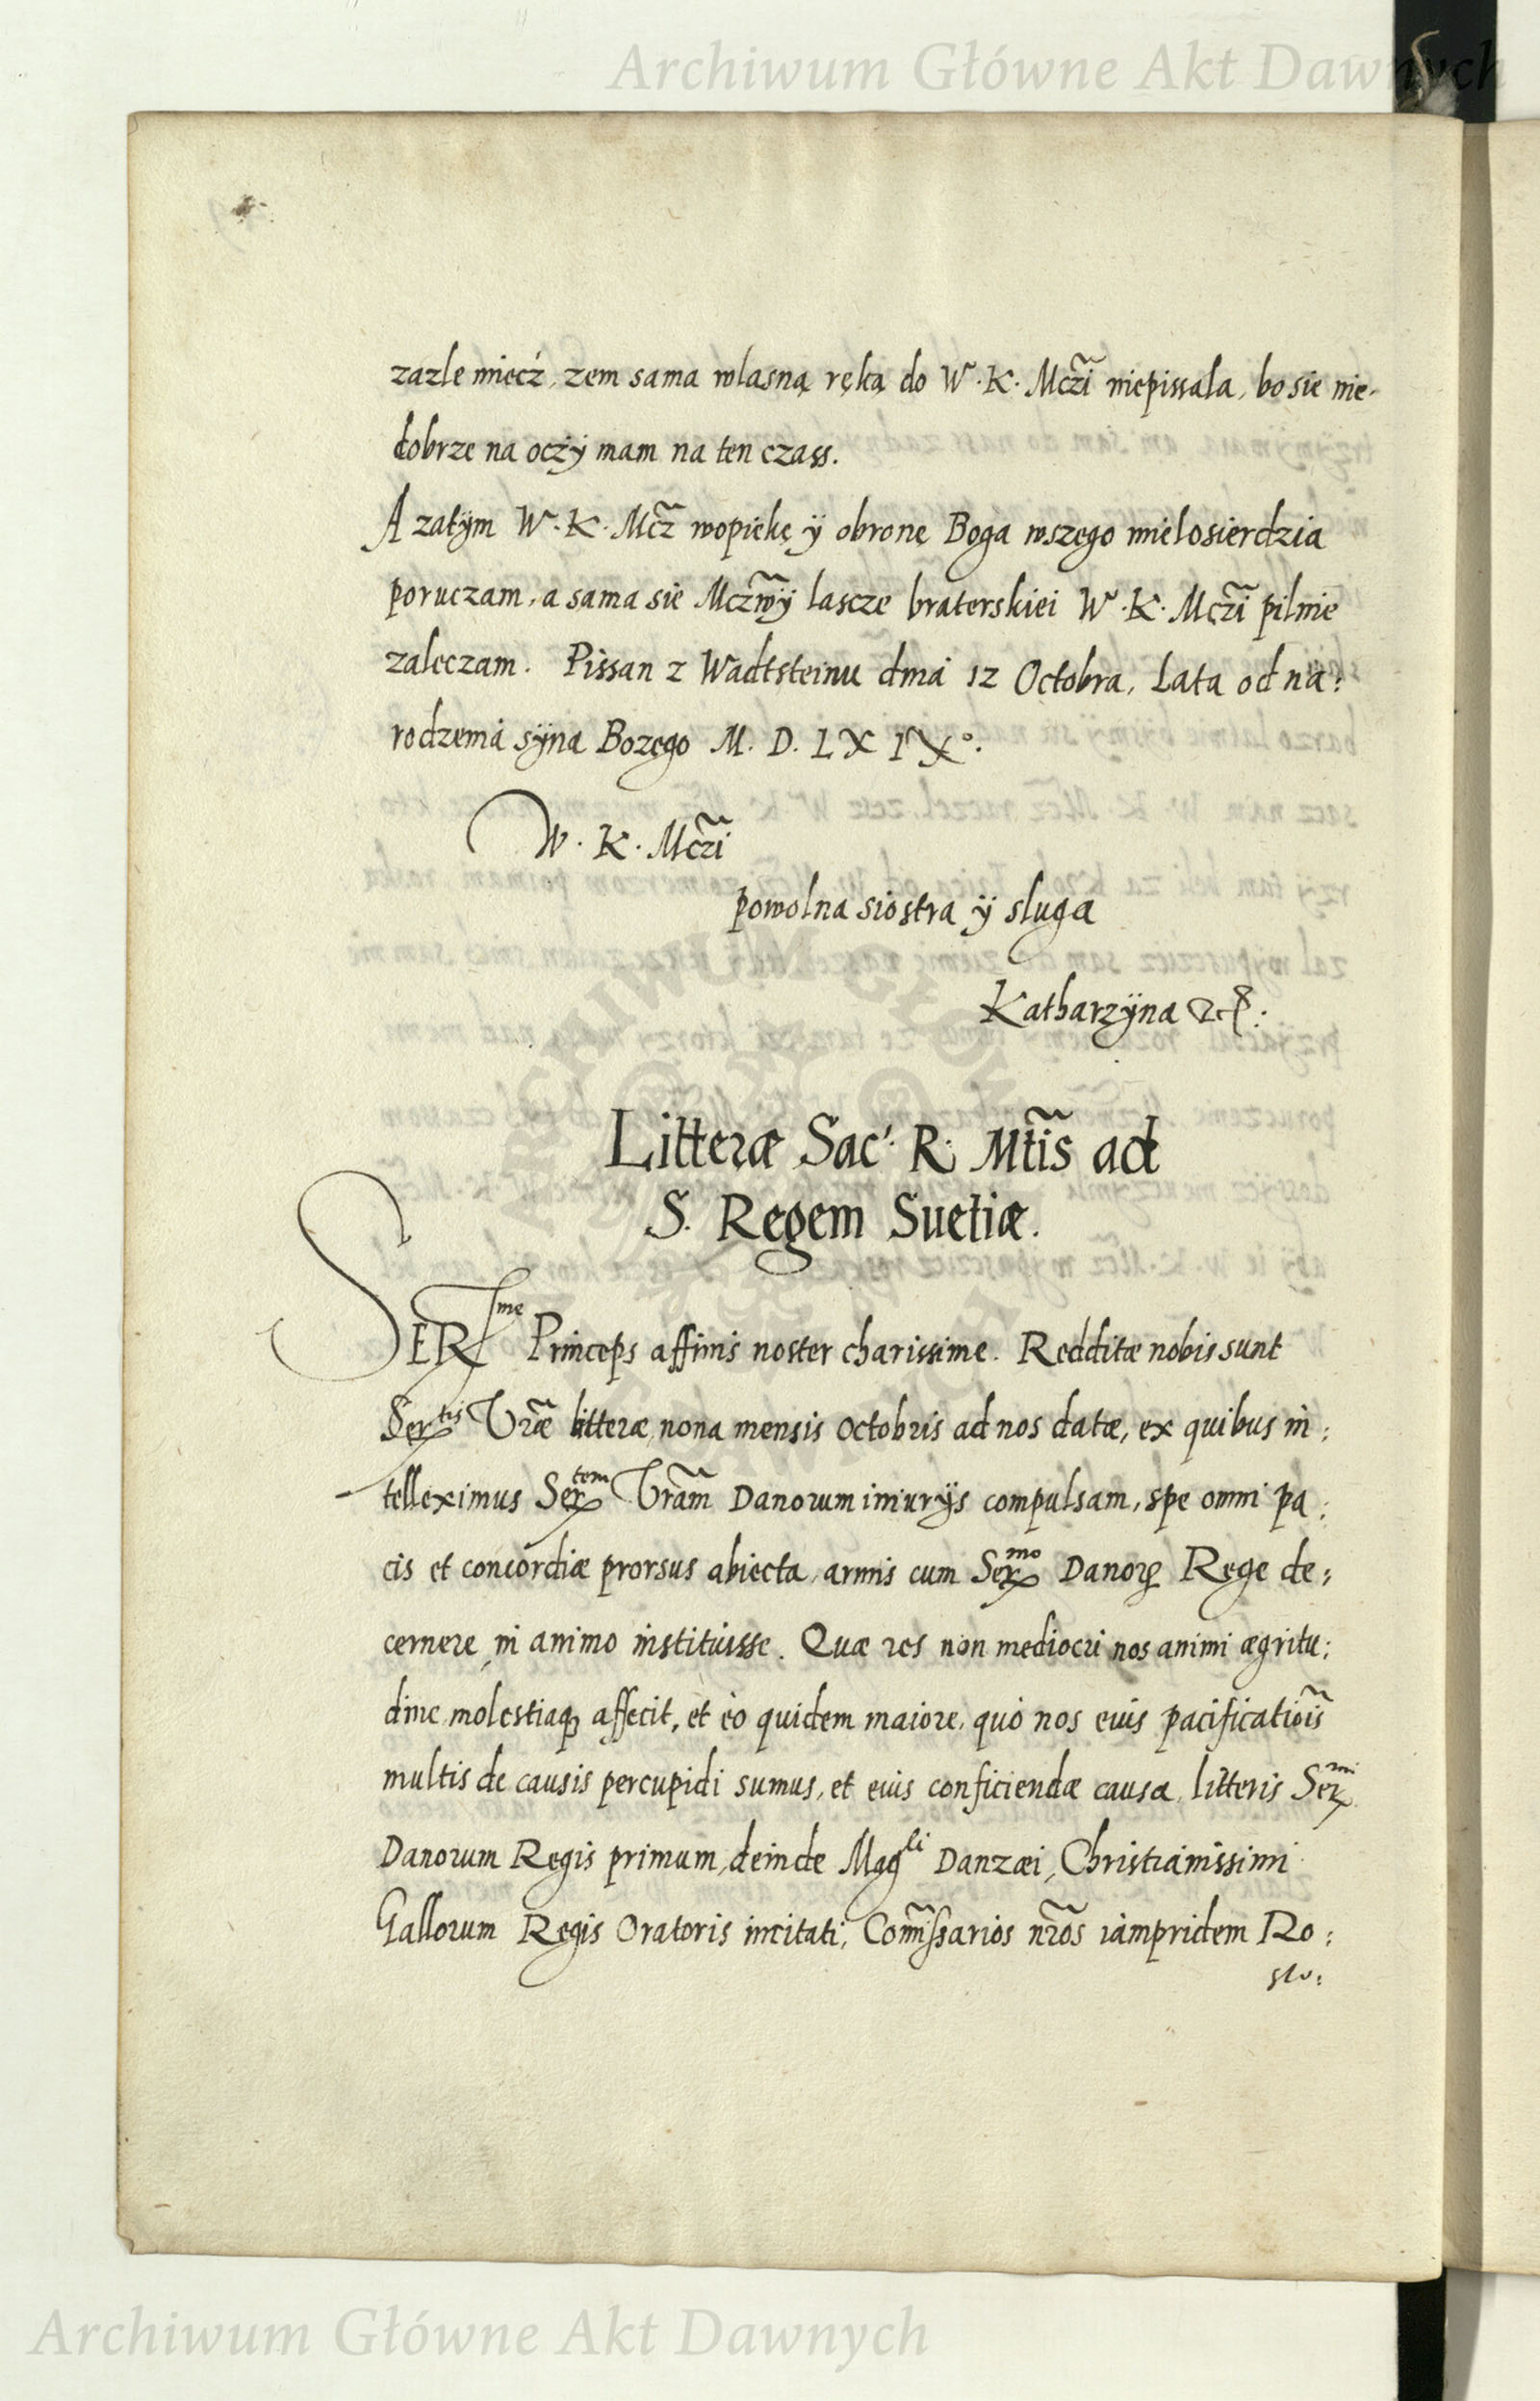 Archiwum Główne Akt Dawnych
zazle miecź, zem sama wlasną ręką do W. K. Mcži niepissala, bo sie nie-
dobrze na oczÿ mam na ten czass.
A zatÿm W. K. Mcz̃ wopiekę ÿ obronę Boga wszego mielosierdzia
poruczam, a sama sie Mcz̃wÿ lascze braterskiei W. K. Mcz̃i pilnie
zaleczam. Pissan z Wadtsteinu dnia 12 Octobra, Lata od na:
rodzenia sÿna Bozego M. D. LXIX°.
W. K. Mcz̃i
powolna siostra ÿ sluga
Katharzÿna
Litteræ Sac. R. Mt̃is ad
S. Regem Suetiæ.
SER^me Princeps affinis noster charissime. Redditæ nobis sunt
Ser^tis Vr̃æ litteræ, nona mensis Octobris ad nos datæ, ex quibus in:
telleximus Ser^tem Vr̃am Danorum iniurÿs compulsam, spe omni pa:
cis et concordiæ prorsus abiecta, armis cum Ser^mo Danorꝝ Rege de:
cernere, in animo instituisse. Quæ res non mediocri nos animi ægritu:
dine, molestiaqꝫ affecit, et eò quidem maiore, quò nos eius pacificatiõis
multis de causis percupidi sumus, et eius conficiendæ causa, litteris Ser^mi
Danorum Regis primum, deinde Mag^ci Danzæi, Christianissimi
Gallorum Regis Oratoris incitati, Com̃issarios nr̃os iampridem Ro:
sto:
ARCHIWUM GŁÓWNE AKT DAWNYCH
Archiwum Główne Akt Dawnych